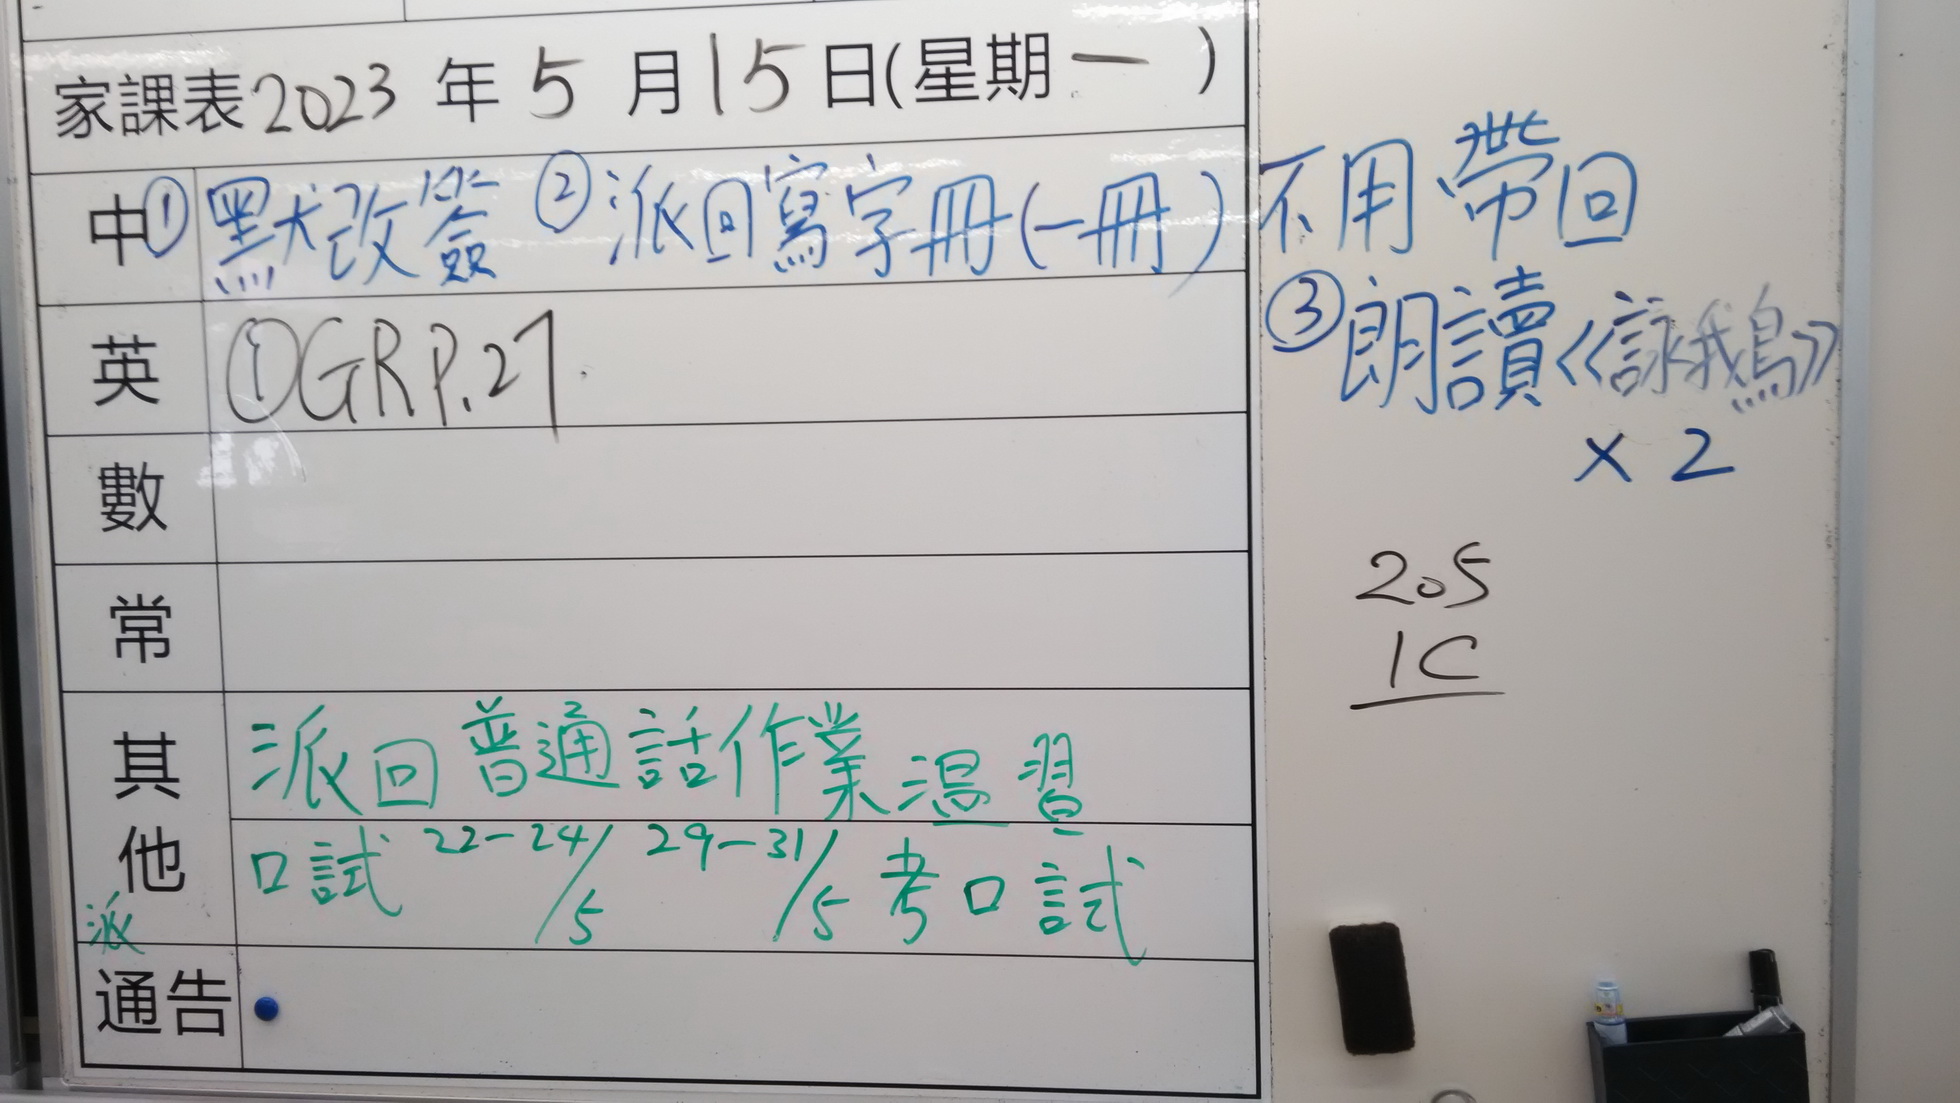 家課表2023年5月15日(星期一)
中 ①默改簽 ②派回寫字冊(一冊)不用帶回
③朗讀《詠鵝》
×2
英 ①GR P.27
數
常
205
1C
其他 派回普通話作業溫習
口試 22-24/5 29-31/5 考口試
派
通告